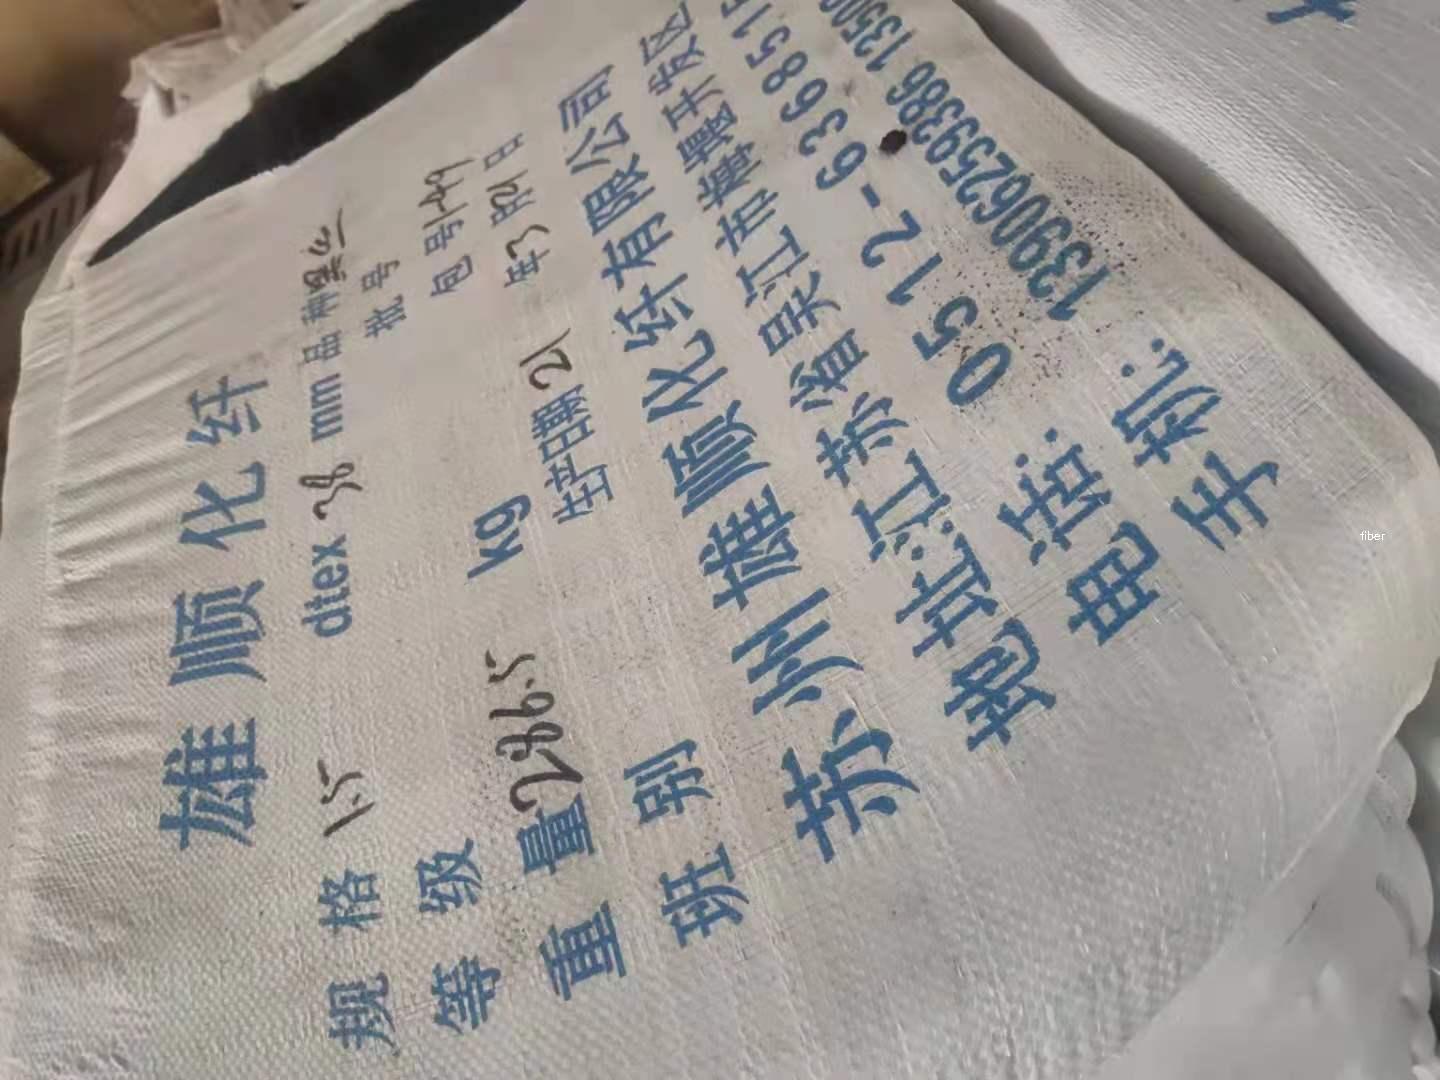 雄顺化纤
规格 1.5 dtex 38 mm 品种 黑
等级 批号
重量 286.5 kg 包号 149
班别 生产日期 21 年 3 月 21 日
苏州雄顺化纤有限公司
地址:江苏省吴江市梅堰开发区
电话: 0512-6368515
手机: 13906259386 1350
fiber